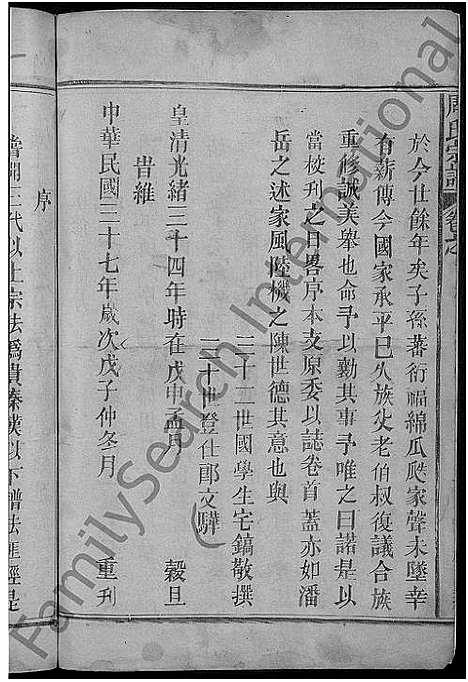 周氏宗譜 卷之
於今廿餘年矣子孫蕃衍福綿瓜瓞家聲未墜幸
有薪傳今國家承平已久族父老伯叔復議合族
重修誠美舉也命予以勷其事予唯之曰諾是以
當校刋之日畧序本支原委以誌卷首蓋亦如潘
岳之述家風陸機之陳世德其意也與
三十二世國學生宅鎬敬撰
三十世登仕郎文驊
皇清光緒三十四年時在戊申孟月 穀旦
旹維
中華民國三十七年歲次戊子仲冬月 重刋
序
嘗聞三代以上宗法爲貴秦漢以下譜法
FamilySearch International